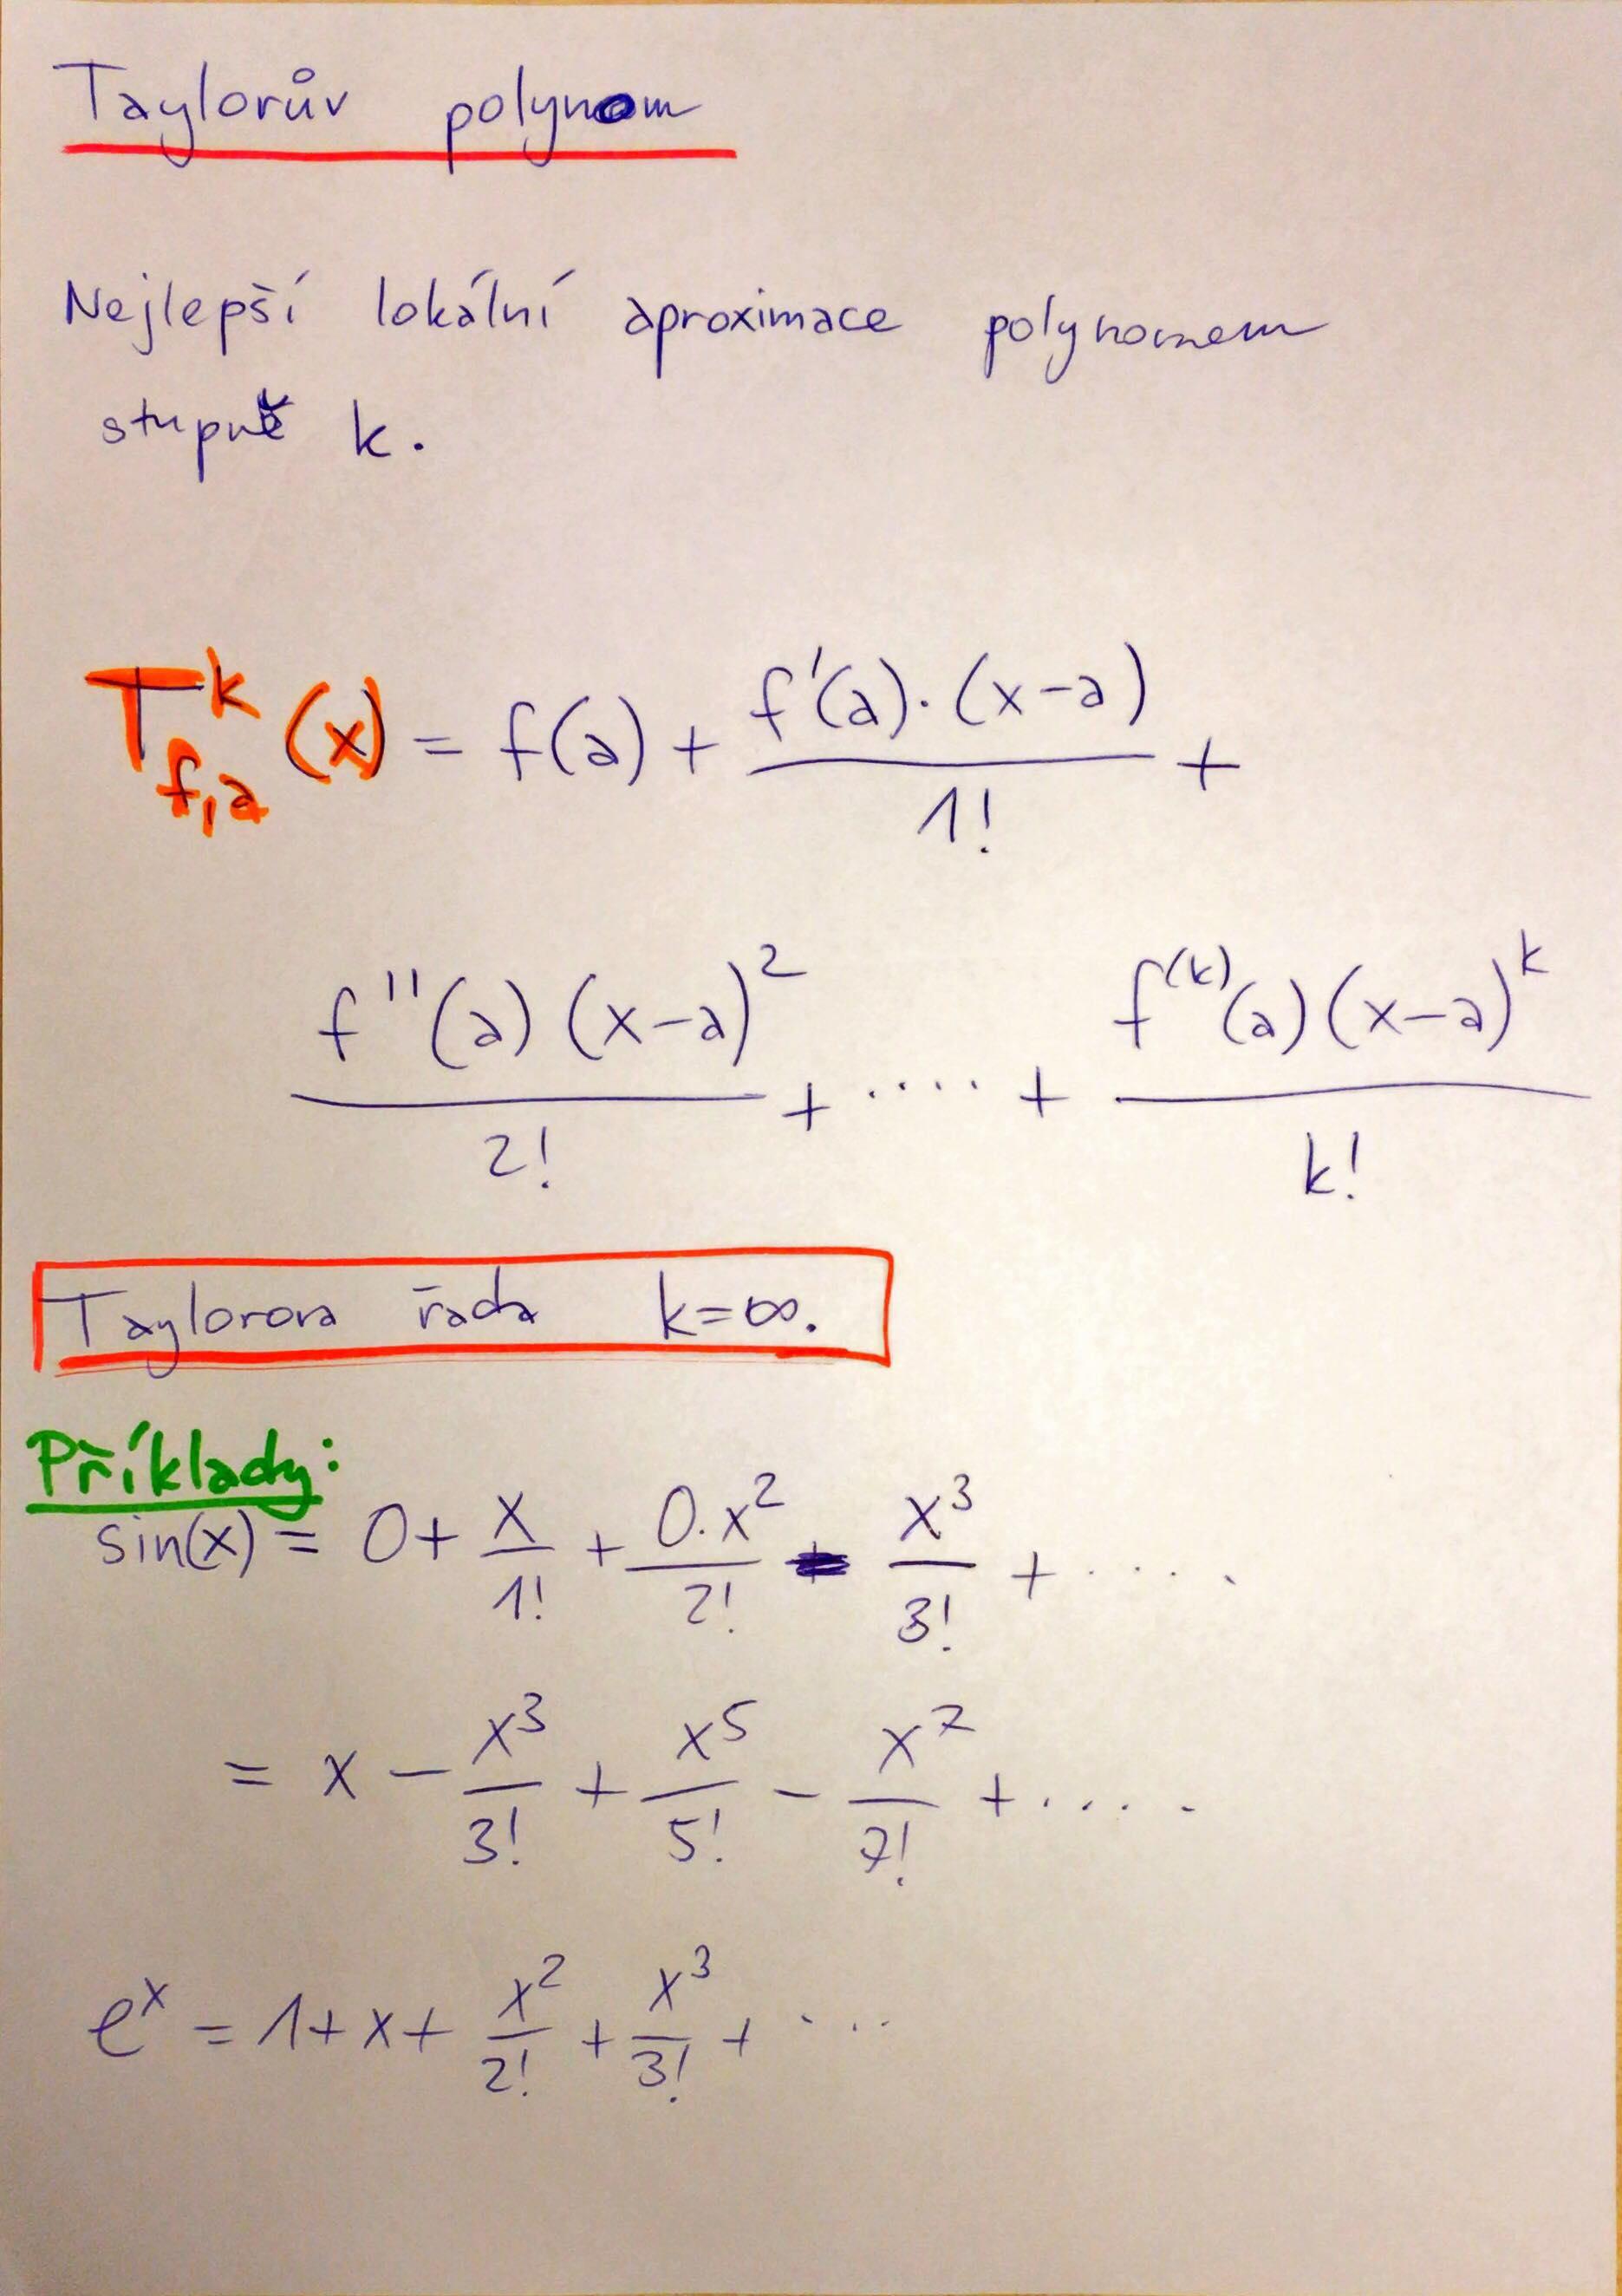 Taylorův polynom
Nejlepší lokální aproximace polynomem
stupně k.
T^k_{f,a}(x) = f(a) + \frac{f'(a)·(x-a)}{1!} +
\frac{f''(a)(x-a)^2}{2!} + ..... + \frac{f^{(k)}(a)(x-a)^k}{k!}
Taylorova řada k=∞.
Příklady:
sin(x) = 0 + \frac{x}{1!} + \frac{0.x^2}{2!} - \frac{x^3}{3!} + .....
= x - \frac{x^3}{3!} + \frac{x^5}{5!} - \frac{x^7}{7!} + .....
e^x = 1 + x + \frac{x^2}{2!} + \frac{x^3}{3!} + ...